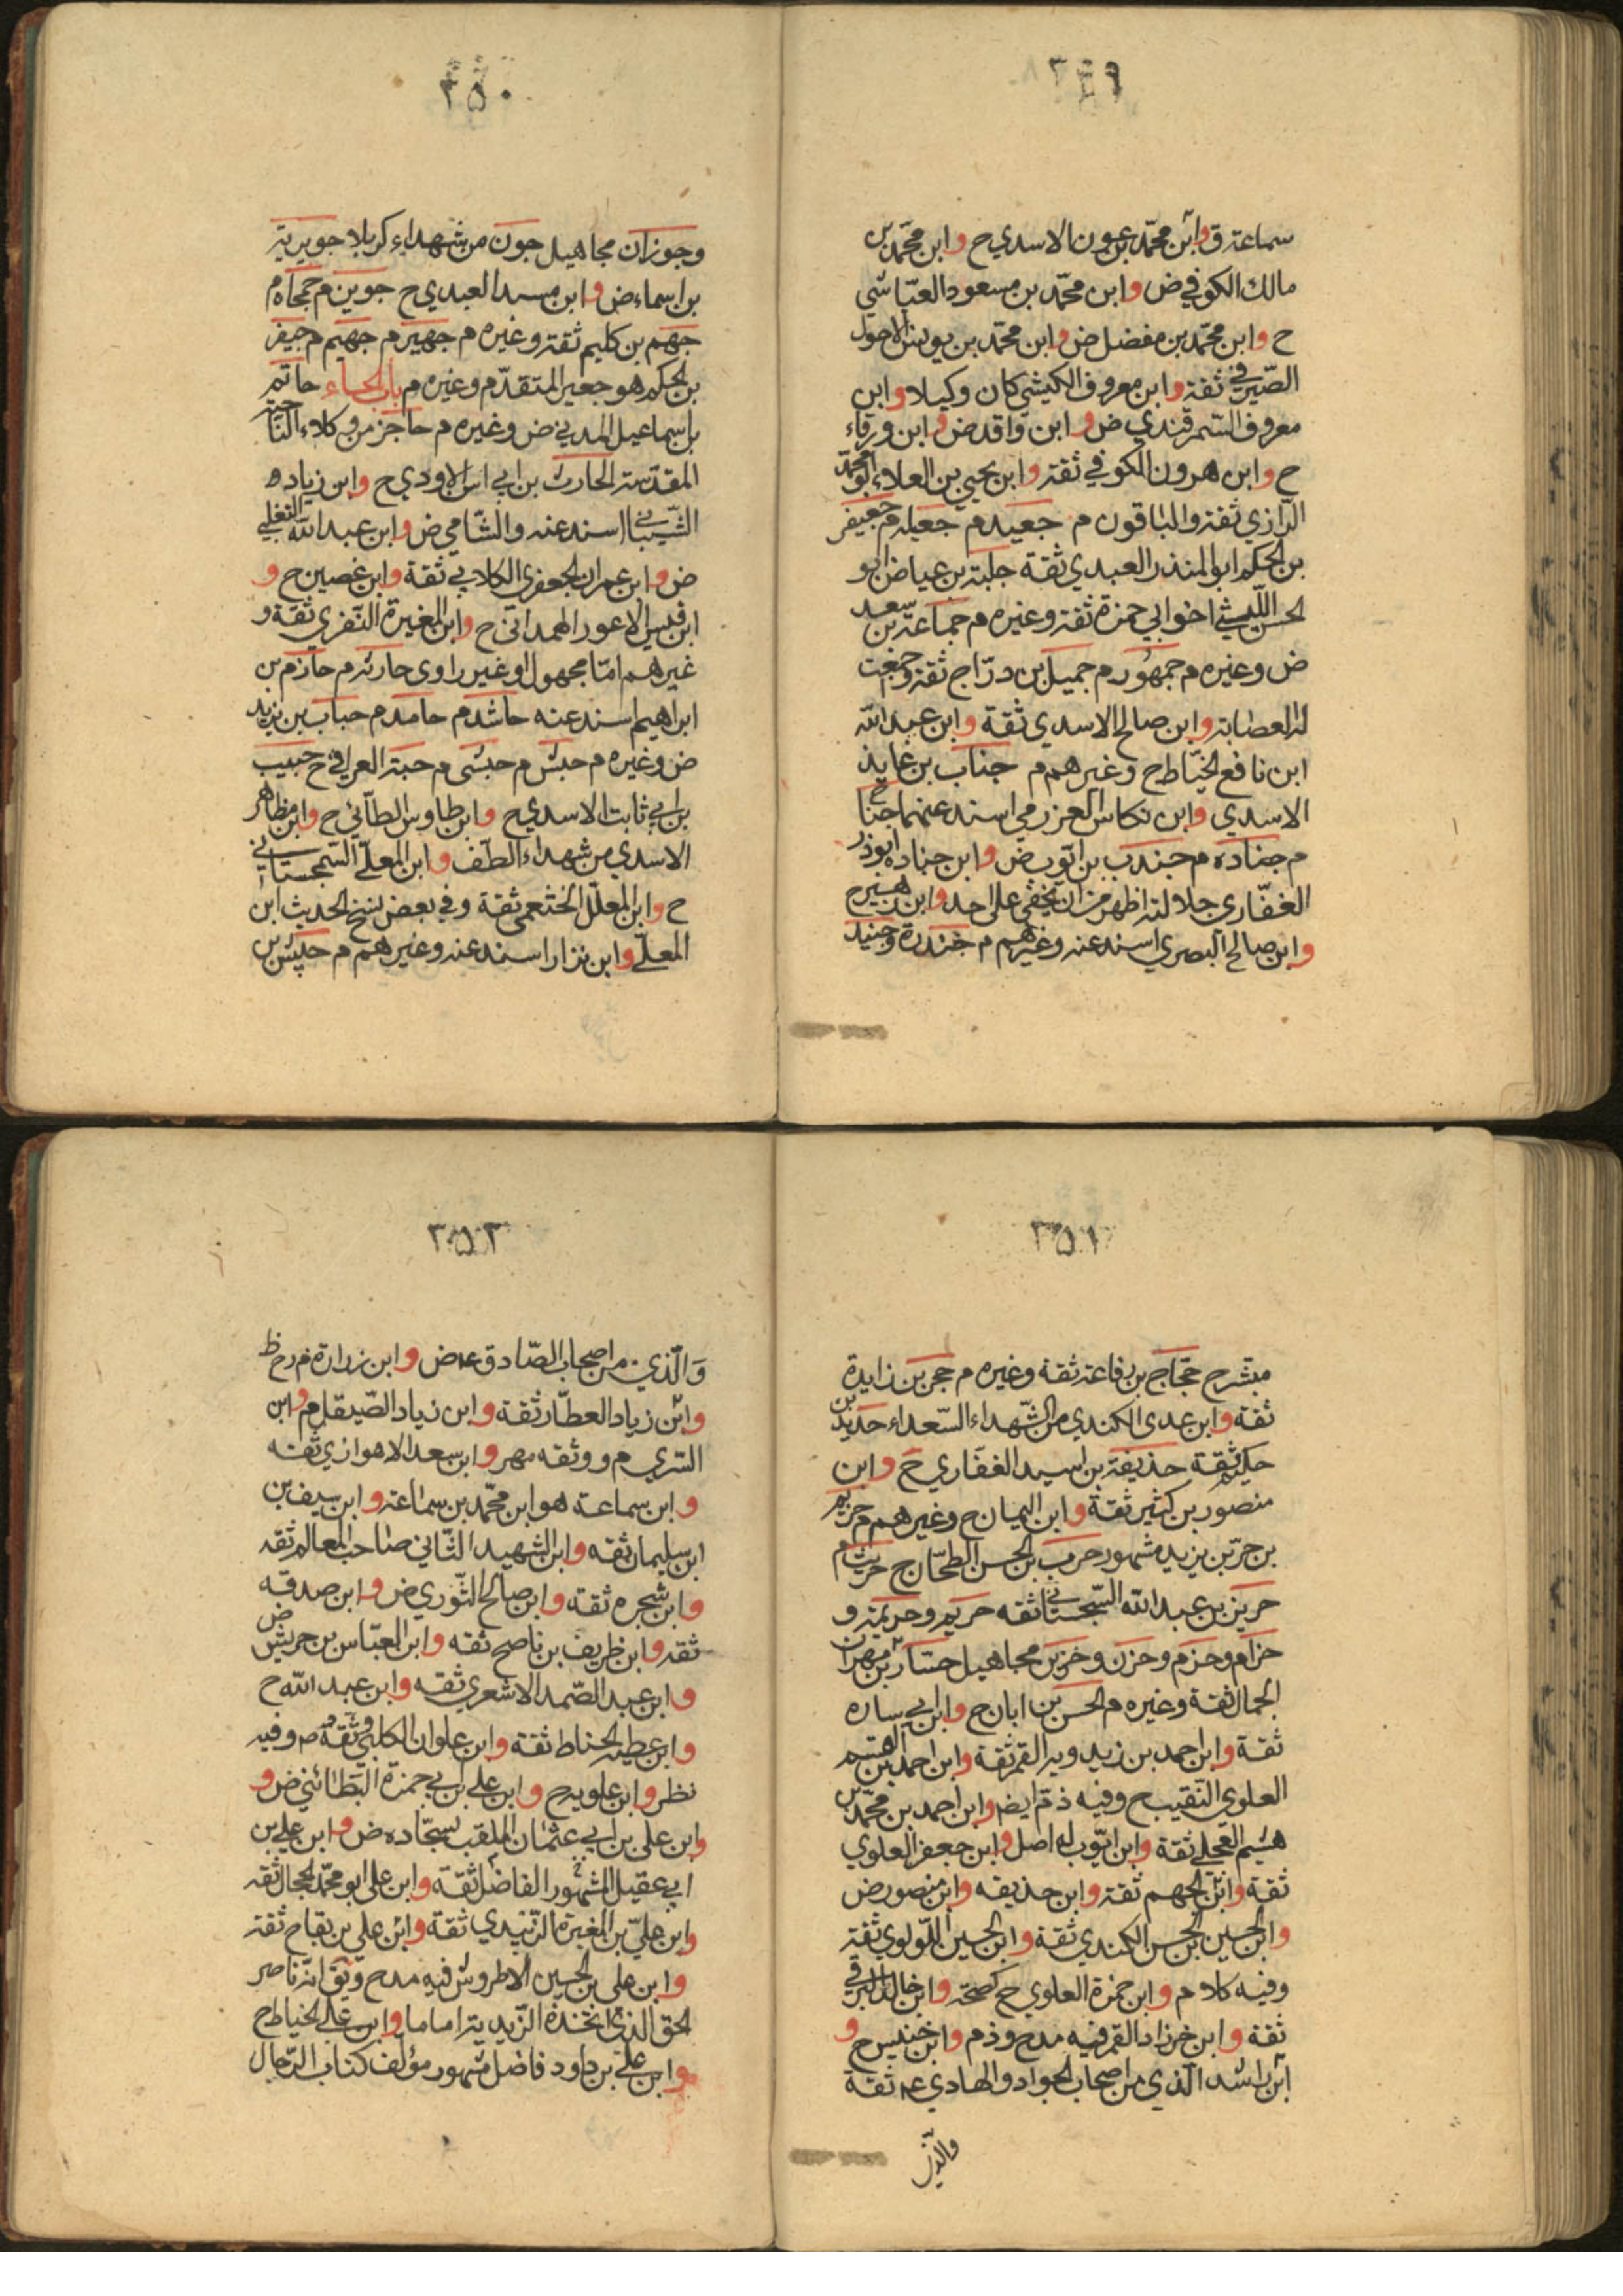 ٣٤٩
سماعة ق وابن محمّد بن عون الاسدي ح وابن محمّد بن
مالك الكوفي ض وابن محمّد بن مسعود العيّاشي
ح وابن محمّد بن مفضل ض وابن محمّد بن يونس الاحول
الصّيرفي ثقة وابن معروف الكيشي كان وكيلا وابن
معروف السّمرقندي ض وابن واقد ض وابن ورقاء
ح وابن هرون الكوفي ثقة وابن يحيى بن العلاء ابو محمّد
الرّازي ثقة والباقون م جعيد م جعيله م جعيفر
بن الحكم ابو المنذر العبدي ثقة جلبة بن عياض ابو
الحسن اللّيثي اخو ابي حمزة ثقة وغيره م جماعة بن سعد
ض وغيره م جمهور م جميل بن درّاج ثقة وجمعت
له العصابة وابن صالح الاسدي ثقة وابن عبد الله
ابن نافع الخيّاط ح وغيرهم م جناب بن عايذ
الاسدي وابن نكاس العزرمي اسند عنهما
م جناده م جندب بن ايّوب ض وابن جناده ابوذر
الغفّاري جلالته اظهر من ان يخفى على احد وابن زهير ح
وابن صالح البصري اسند عنه وغيرهم م جندرة وجنيد
٣٥٠
وجوزان مجاهيل جون من شهداء كربلا جويرية
بن اسماء ض وابن مسهر العبدي ح جوين م جهجاه م
جهم بن كليم ثقة وغيره م جهير م جهيم م جيفر
بن الحكم هو جعير المتقدّم وغيره م باب الحاء حاتم
بن اسماعيل المدني ض وغيره م حاجز من وكلاء النّاحية
المقدّسة الحارث بن ابي اسالاودي ح وابن زياده
الشّيباني اسند عنه والشّامي ض وابن عبد الله التغلبي
ض وابن عمران الجعفري الكلابي ثقة وابن غصين ح و
ابن قيس الاعور الهمداني ح وابن المغيرة النّفري ثقة و
غيرهم امّا مجهول او غير راوى حارثه م حازم بن
ابراهيم اسند عنه حاشد م حامد م حباب بن يزيد
ض وغيره م حبش م حبشى م حبة العرني ح حبيب
بن ابي ثابت الاسدي ح وابن طاوس الطائي ح وابن مظاهر
الاسدي من شهداء الطّف وابن المعلّى السّجستاني
ح وابن المعلّل الخثعمي ثقة وفي بعض نسخ الحديث ابن
المعلّى وابن نزار اسند عنه وغيرهم م حبيش بن
٣٥١
مبشر ح حجّاج بن رفاعة ثقة وغيره م حجر بن زايدة
ثقة وابن عدى الكندي من الشّهداء السّعداء حديد بن
حكيم ثقة حذيفة بن اسيد الغفاري ح وابن
منصور بن كثير ثقة وابن اليمان ح وغيرهم م حر
بن حرّ بن يزيد مشهور حرب بن الحسن الطحّان ح حريث م
حريز بن عبد الله السّجستاني ثقه حريم وحريمة و
حزام وحزم وحزن وحزين مجاهيل حسّان بن مهران
الجمال ثقة وغيره م الحسن بن ابان ح وابن ابي ساره
ثقة وابن احمد بن زيدويه القمي ثقة وابن احمد بن القسم
العلوي النّقيب ح وفيه ذمّ ايض وابن احمد بن محمّد بن
هيثم العجلي ثقة وابن ايّوب له اصل وابن جعفر العلوي
ثقة وابن الجهم ثقة وابن حذيفه وابن منصور ض
وابن الحسين بن الحسن الكندي ثقة وابن الحسين اللّولوي ثقة
وفيه كلام م وابن حمزة العلوي ح كصحّة وابن خالد البرقي
ثقة وابن خرزاد القمي فيه مدح وذم وابن خنيس ح و
ابن راشد الّذي من اصحاب الجواد والهادي ع ثقة
والّذي
٣٥٢
وَالّذي من اصحاب الصّادق ع ض وابن زرارة م رح ظ
وابن زياد العطّار ثقة وابن زياد الصّيقل م وابن
السّري م ووثقه مهر وابن سعد الاهوازي ثقته
وابن سماعة هو ابن محمّد بن سماعة وابن سيف بن
ابن سليمان ثقه وابن الشهيد الثّاني صاحب المعالم ثقه
وابن شجره ثقة وابن صالح الثّوري ض وابن صدقه
ثقه وابن ظريف بن ناصح ثقه وابن العبّاس بن حريش ض
وابن عبد الصّمد الاشعري ثقه وابن عبد الله ح
وابن عطيه الحناط ثقة وابن علوان الكلبي وثقه ص وفيه
نظر وابن علويه ح وابن علي بن ابي حمزة البطائني ض و
وابن علي بن ابي عثمان الملقب بسجّاده ض وابن علي بن
ابي عقيل المشهور الفاضل ثقة وابن علي ابو محمّد الحجال ثقه
وابن عليّ بن المغيرة الزّبيدي ثقة وابن علي بن بقاح ثقة
وابن علي بن الحسين الاطروش فيه مدح وثق انّه ناصر
الحق الذي اتّخذه الزّيدية اماما وابن علي الخياط ح
وابن علي بن داود فاضل مشهور مؤلف كتاب الرّجال